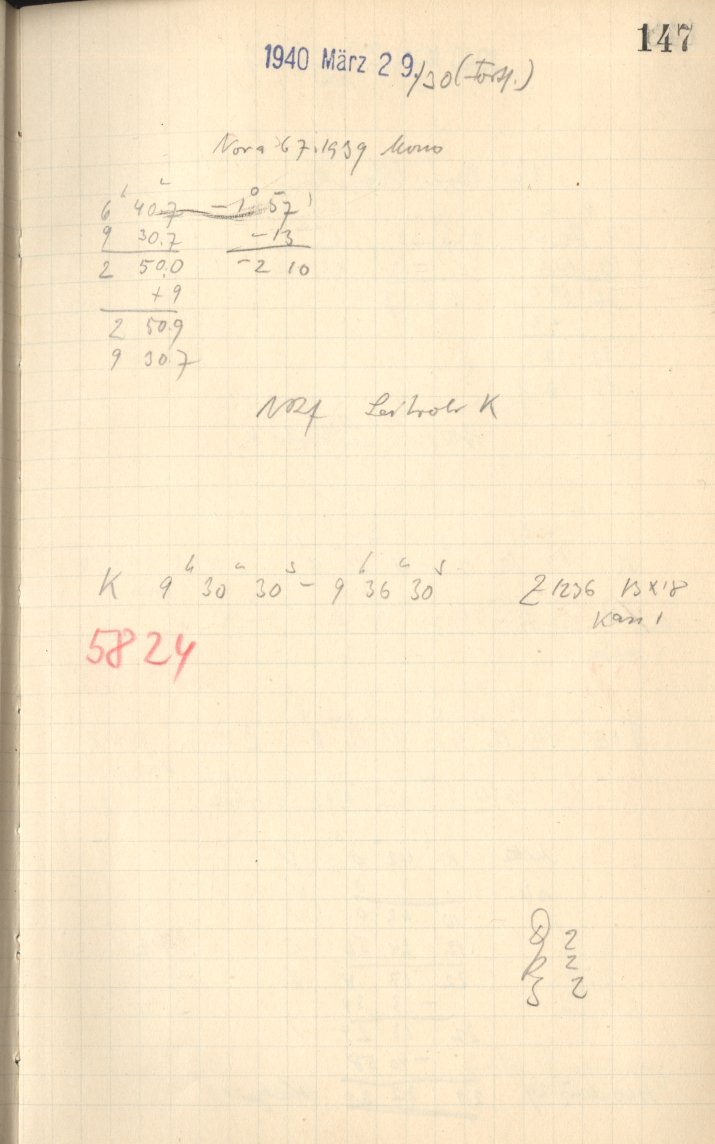 147
1940 März 29./30 (Forts.)
Nova 67.1939 Mono
6ʰ 40.7 -1° 57'
9 30.7 -13
2 50.0 -2 10
+9
2 50.9
9 30.7
Leitrohr K
K 9ʰ 30ᵐ 30ˢ - 9ʰ 36ᵐ 30ˢ Z 1236 13×18
Kass 1
5824
2
2
2